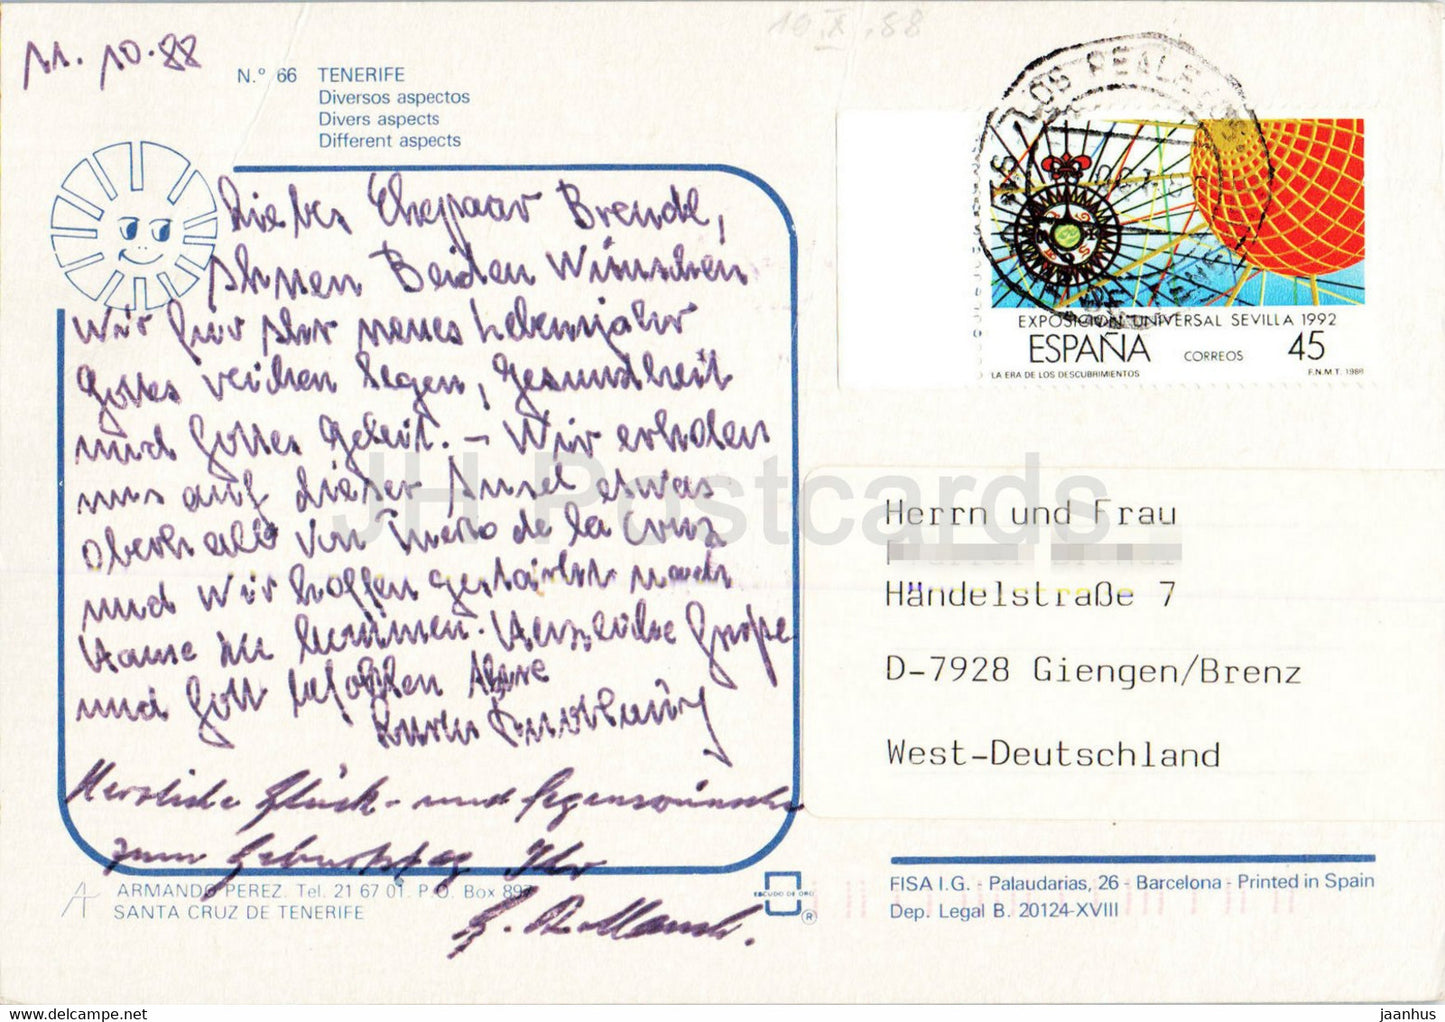 11.10.88
10.X.88
N.º 66 TENERIFE
Diversos aspectos
Divers aspects
Different aspects
Liebes Ehepaar Brendl,
Ihnen Beiden wünschen
wir für Ihr neues Lebensjahr
Gottes reichen Segen, Gesundheit
und Gottes Geleit. – Wir erholen
uns auf dieser Insel etwas
oberhalb von de la Cruz
und wir hoffen gestärkt nach
Hause zu kommen. Herzliche Grüße
und Gott befohlen Ihre
Herzliche Glück- und Segenswünsche
zum Geburtstag Ihr
LOS REALEJOS
EXPOSICION UNIVERSAL SEVILLA 1992
ESPAÑA CORREOS 45
LA ERA DE LOS DESCUBRIMIENTOS F.N.M.T. 1988
JH Postcards
Herrn und Frau
Händelstraße 7
D-7928 Giengen/Brenz
West-Deutschland
ARMANDO PEREZ. Tel. 21 67 01. P.O. Box 897
SANTA CRUZ DE TENERIFE
ESCUDO DE ORO
®
FISA I.G. - Palaudarias, 26 - Barcelona - Printed in Spain
Dep. Legal B. 20124-XVIII
www.hippostcard.com
jaanhus